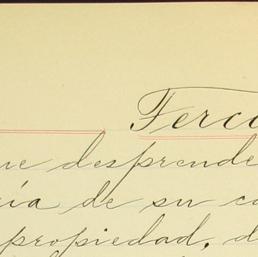 Ferc
ue desprende
ía de su c
propiedad, d